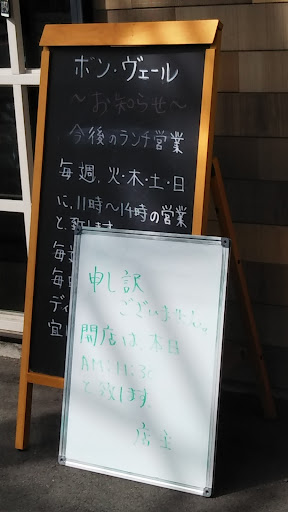 ボン・ヴェール
〜お知らせ〜
今後のランチ営業
毎週、火・木・土・日
に、11時〜14時の営業
と致します
毎週
毎
ディ
宜
申し訳
ございません。
開店は、本日
AM:11:30
と致します
店主